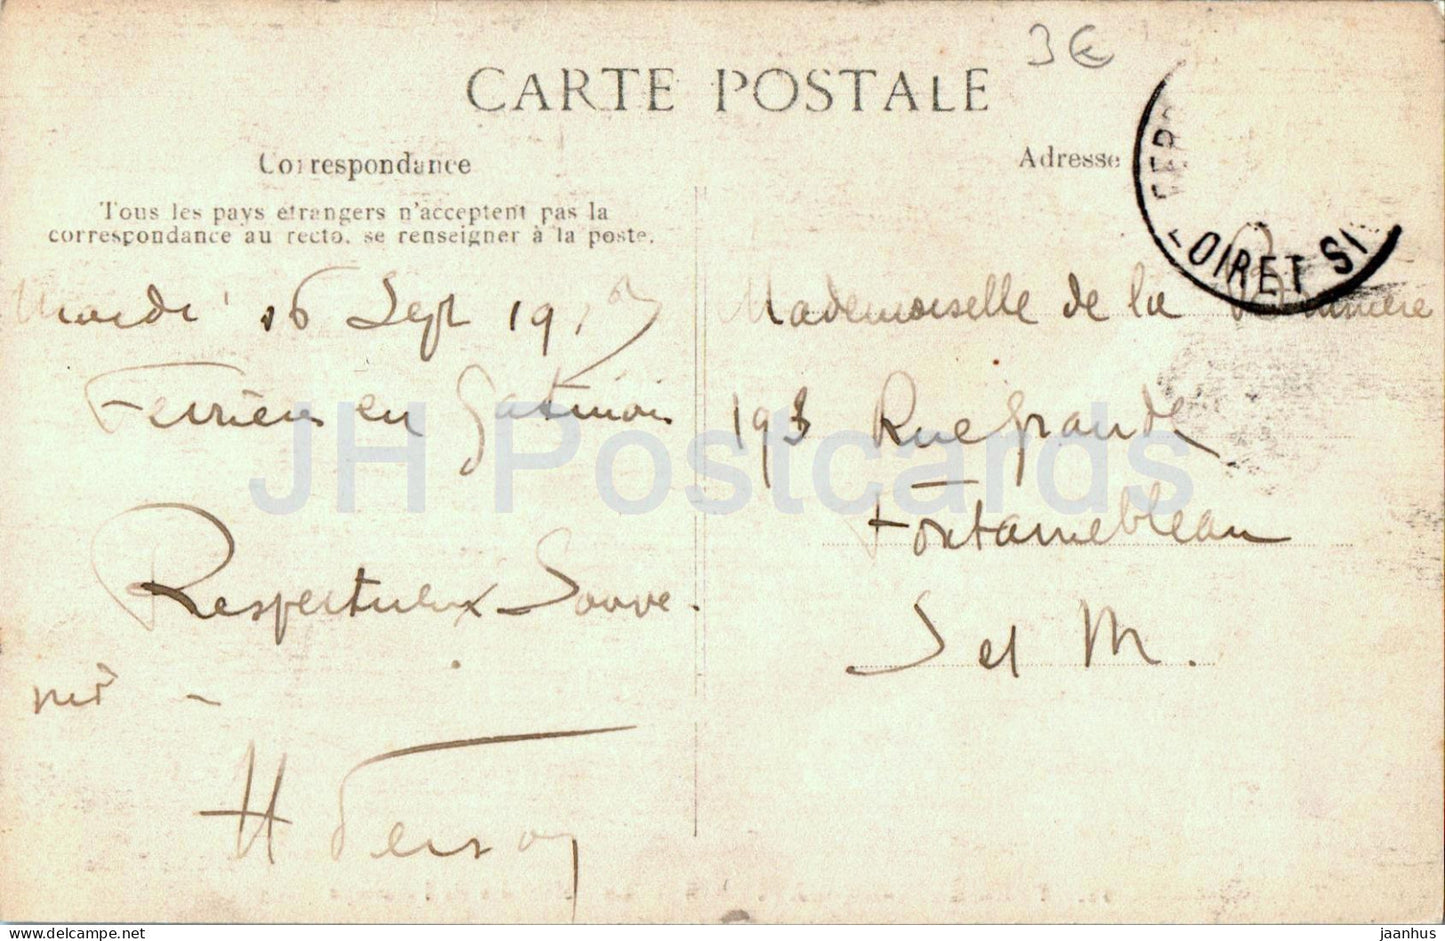 3€
CARTE POSTALE
Correspondance
Tous les pays étrangers n'acceptent pas la
correspondance au recto, se renseigner à la poste.
Mardi 16 Sept 1913
Ferrières en Gatinais
Respectueux Souve-
nir -
H
Adresse
LOIRET
Mademoiselle de la
193 Rue Grande
Fontainebleau
S et M.
JH Postcards
© jaanhus / delcampe.net